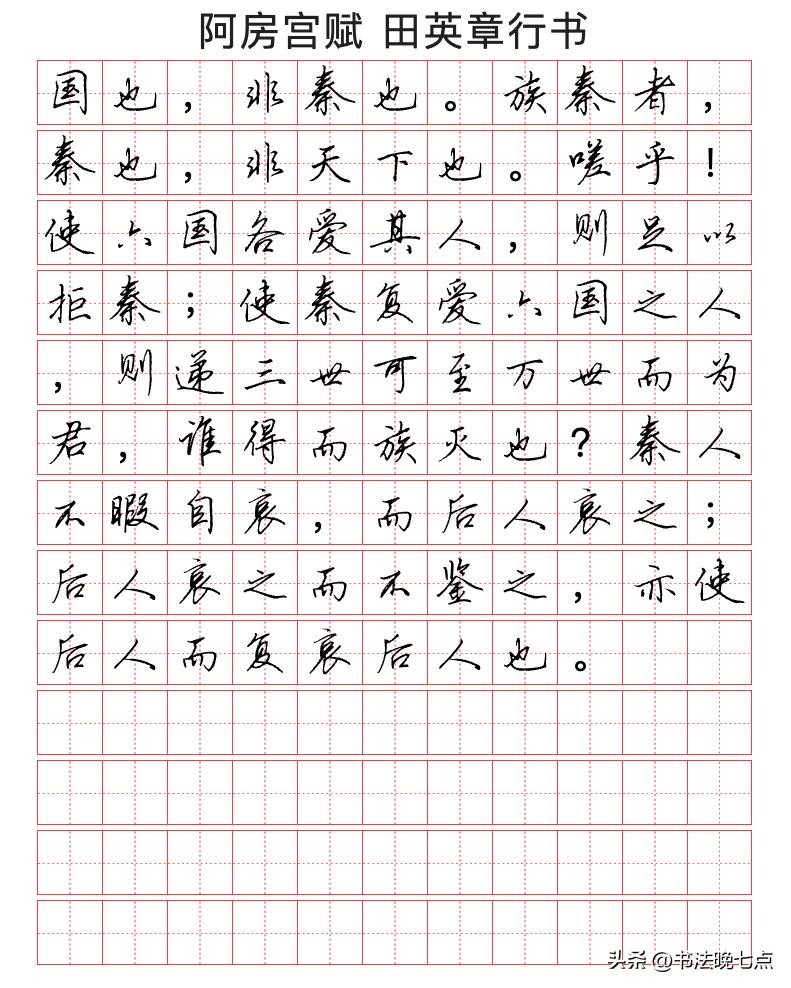 阿房宫赋 田英章行书
国也，非秦也。族秦者，
秦也，非天下也。嗟乎！
使六国各爱其人，则足以
拒秦；使秦复爱六国之人
，则递三世可至万世而为
君，谁得而族灭也？秦人
不暇自哀，而后人哀之；
后人哀之而不鉴之，亦使
后人而复哀后人也。
头条 @书法晚七点